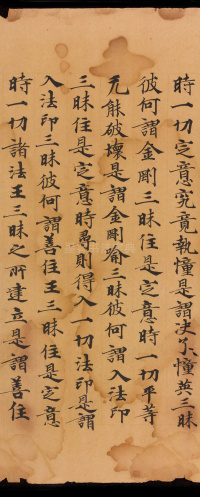 時一切定意究竟執幢是謂决了幢英三昧
彼何謂金剛三昧住是定意時一切平等
无能破壞是謂金剛喻三昧彼何謂入法印
三昧住是定意時尋則得入一切法印是謂
入法印三昧彼何謂善住王三昧住是定意
時一切諸法王三昧之所建立是謂善住